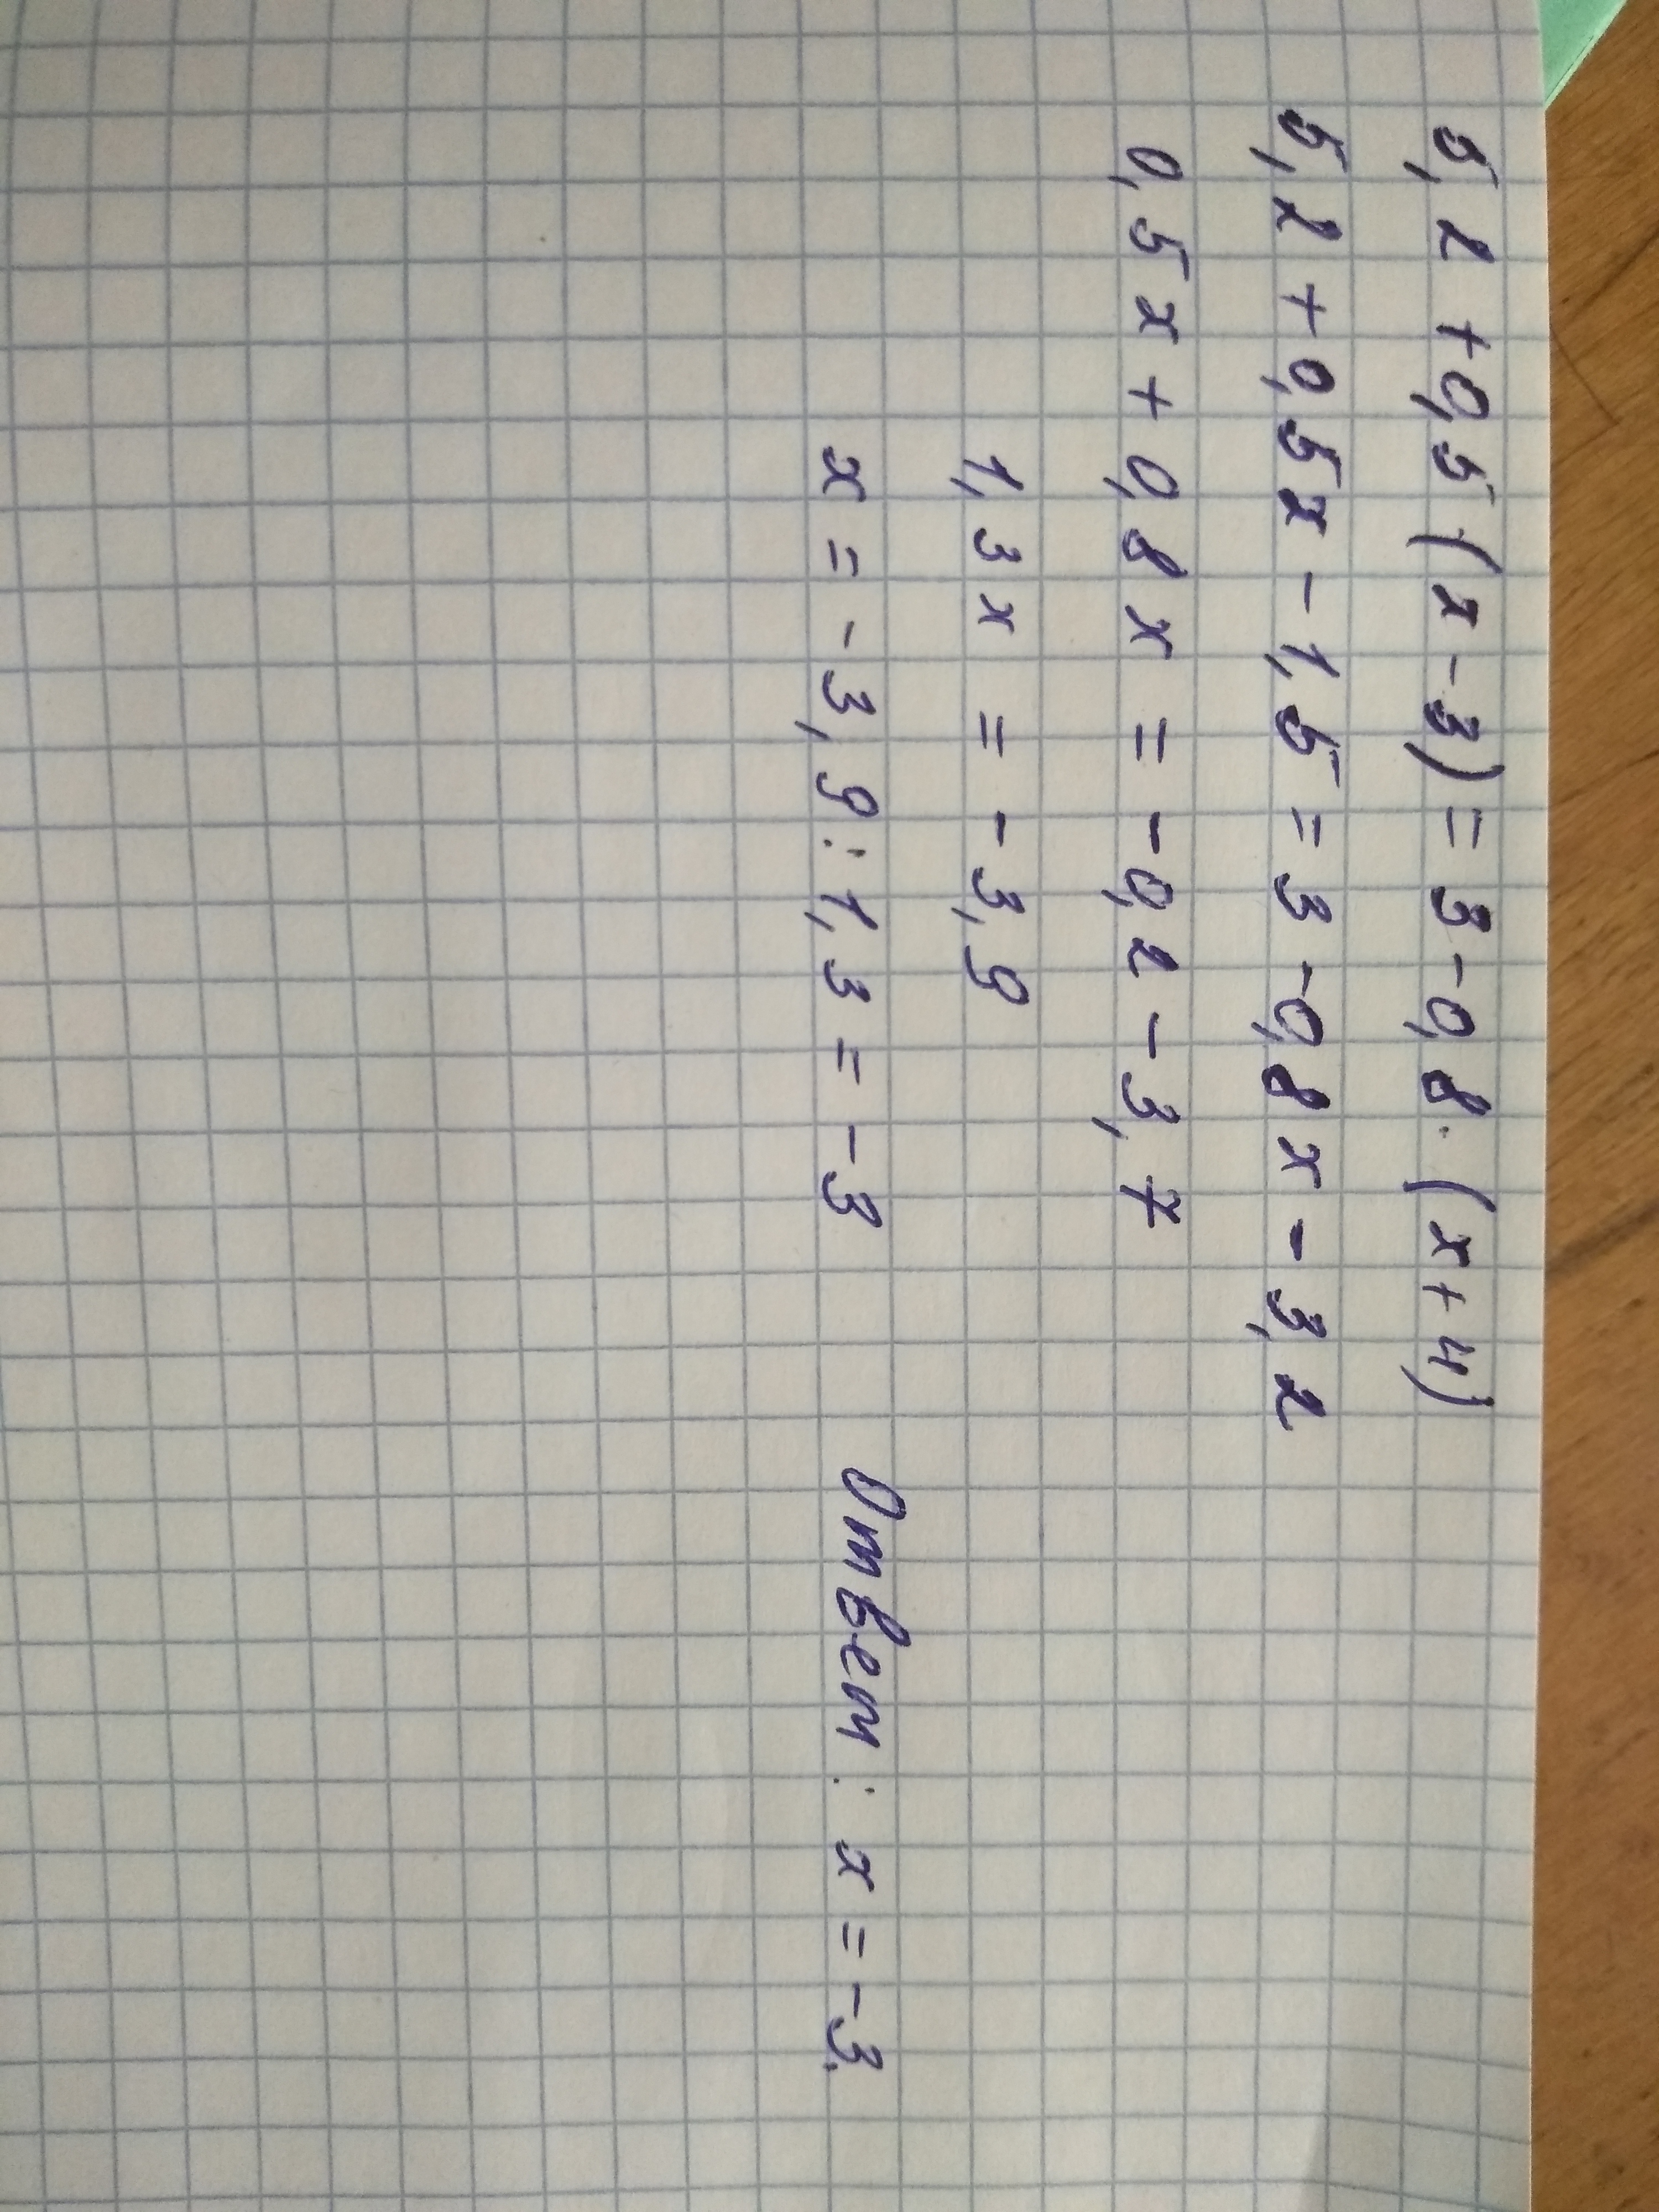 5,2 + 0,5 (x - 3) = 3 - 0,8 · (x + 4)
5,2 + 0,5x - 1,5 = 3 - 0,8x - 3,2
0,5x + 0,8x = -0,2 - 3,7
1,3x = -3,9
x = -3,9 : 1,3 = -3
Ответ : x = -3.